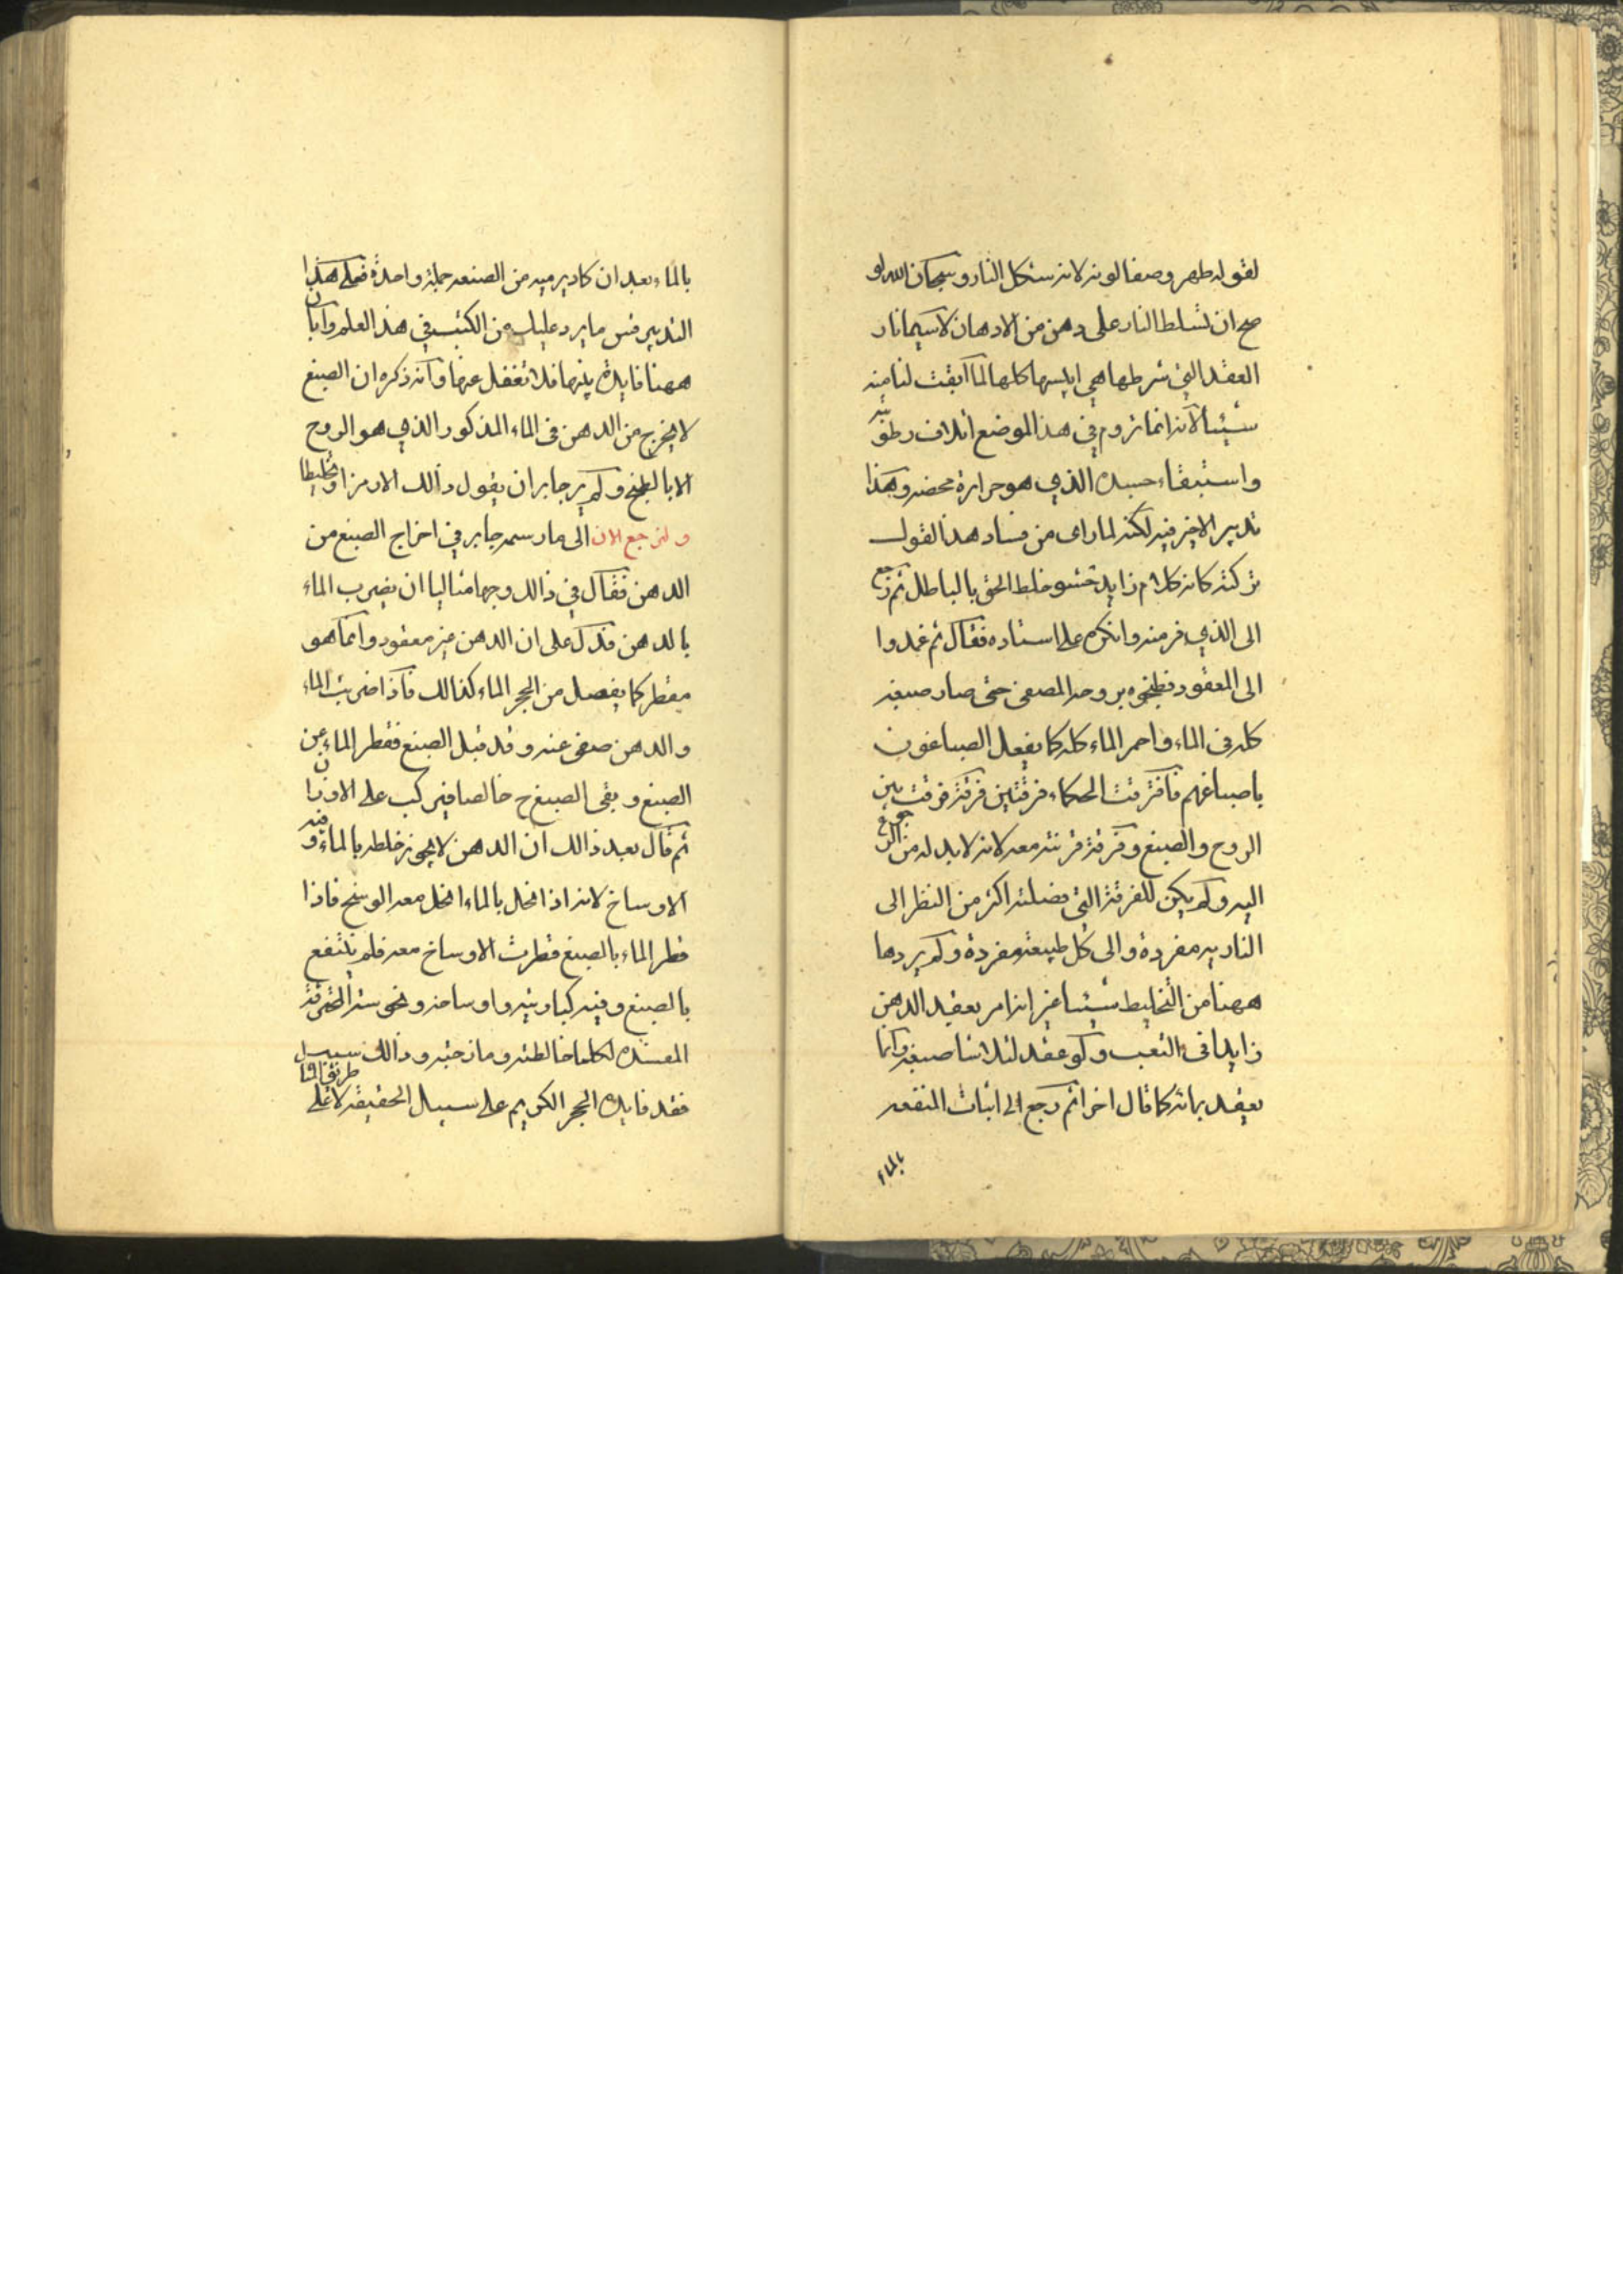 لقوله طهر وصفا لونه لانه سنكل النار وسبحان الله لو
صح ان تسلط النار على دهن من الادهان لا سيما نار
العقد التي شرطها هي ايبسها كلها لما ابقت لنا منه
شيئا لانه انما نروم في هذا الموضع اتلاف رطوبته
واستبقاء جسده الذي هو حرارة محضه وبهذا
تدبير الاخر فيه لكنه لما راى من فساد هذا القول
تركته كانه كلام زايد حشو خلط الحق بالباطل ثم رجع
الى الذي فر منه وانكره على استاده فقال ثم عمدوا
الى المعقود فطبخوه بروحه المصعى حتى صار صبغه
كله في الماء واحمر الماء كله كما يفعل الصباغون
باصباغهم فافترقت الحكماء فرقتين فرقة فرقت بين
الروح والصبغ وفرقة قرنته معه لانه لابد له من الرجوع
اليه ولم يكن للفرقة التي فصلته اكثر من النظر الى
الناريه مفردة والى كل طبيعة مفردة ولم يردها
ههنا من التخليط شيئا غير انه امر بعقد الدهن
زايدا في التعب ولو عقد لتلاشا صبغه وانما
يعقد بمائه كما قال اخرا ثم رجع الى اثبات المنقعه
بالماء
بالماء بعد ان كاد يرميه من الصنعه جملة واحدة فعلى هذا
التدبير فقس ما يرد عليك من الكتب في هذا العلم واياك
ههنا فايدة ينبها فلا تغفل عنها وانه ذكره ان الصبغ
لا يخرج من الدهن في الماء المذكور الذي هو الروح
الا بالطبخ ولم ير جابر ان يقول ذالك الا رمزا وتخليطا
ولنرجع الان الى ما رسمه جابر في اخراج الصبغ من
الدهن فقال في ذالك وجها مثاليا ان يضرب الماء
بالدهن فدل على ان الدهن غير معقود وانما هو
مقطر كما يفصل من الحجر الماء كذالك فاذا ضربت الماء
والدهن صفى عنه وقد قبل الصبغ فقطر الماء عن
الصبغ وبقى الصبغ ح خالصا فيركب على الاوزان
ثم قال بعد ذالك ان الدهن لا يجوز خلطه بالماء وفيه
الاوساخ لانه اذا انحل بالماء انحل معه الوسخ فاذا
قطر الماء بالصبغ قطرت الاوساخ معه فلم ينتفع
بالصبغ وفيه كباريته واوساخه ونحوسته المحرقة
المفسده لكلما خالطته ومازجته وذالك سبيل
فقد فايدة الحجر الكريم على سبيل الحقيقه لا على طريق المثا